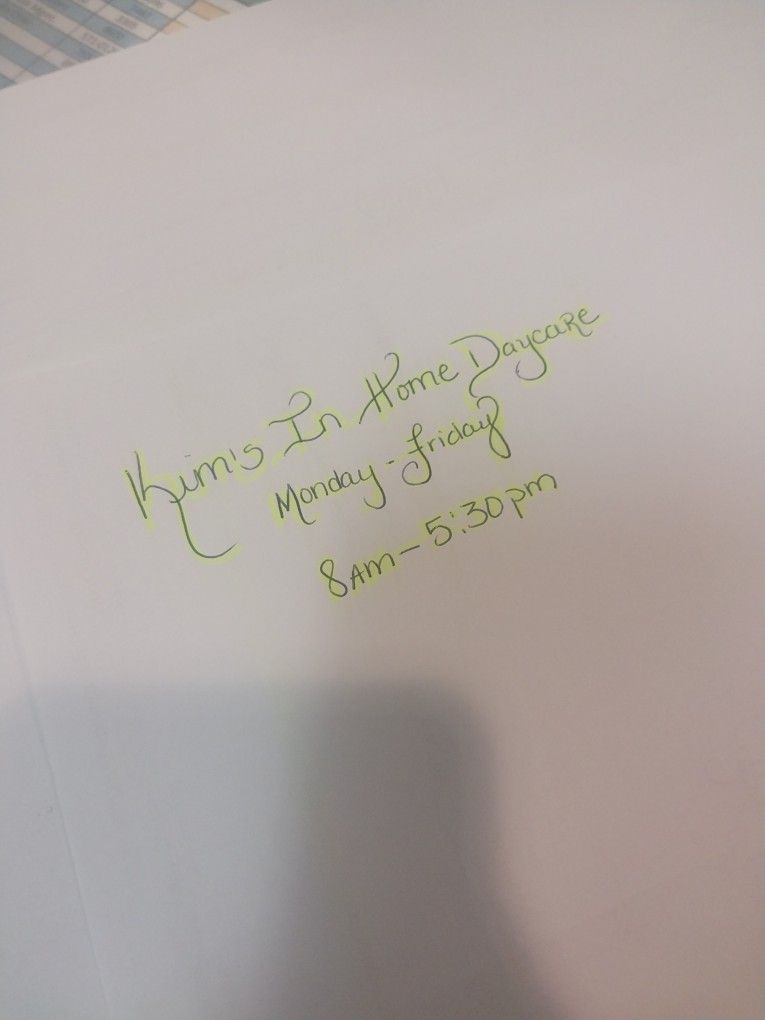 Kim's In Home Daycare
Monday - Friday
8AM - 5:30pm